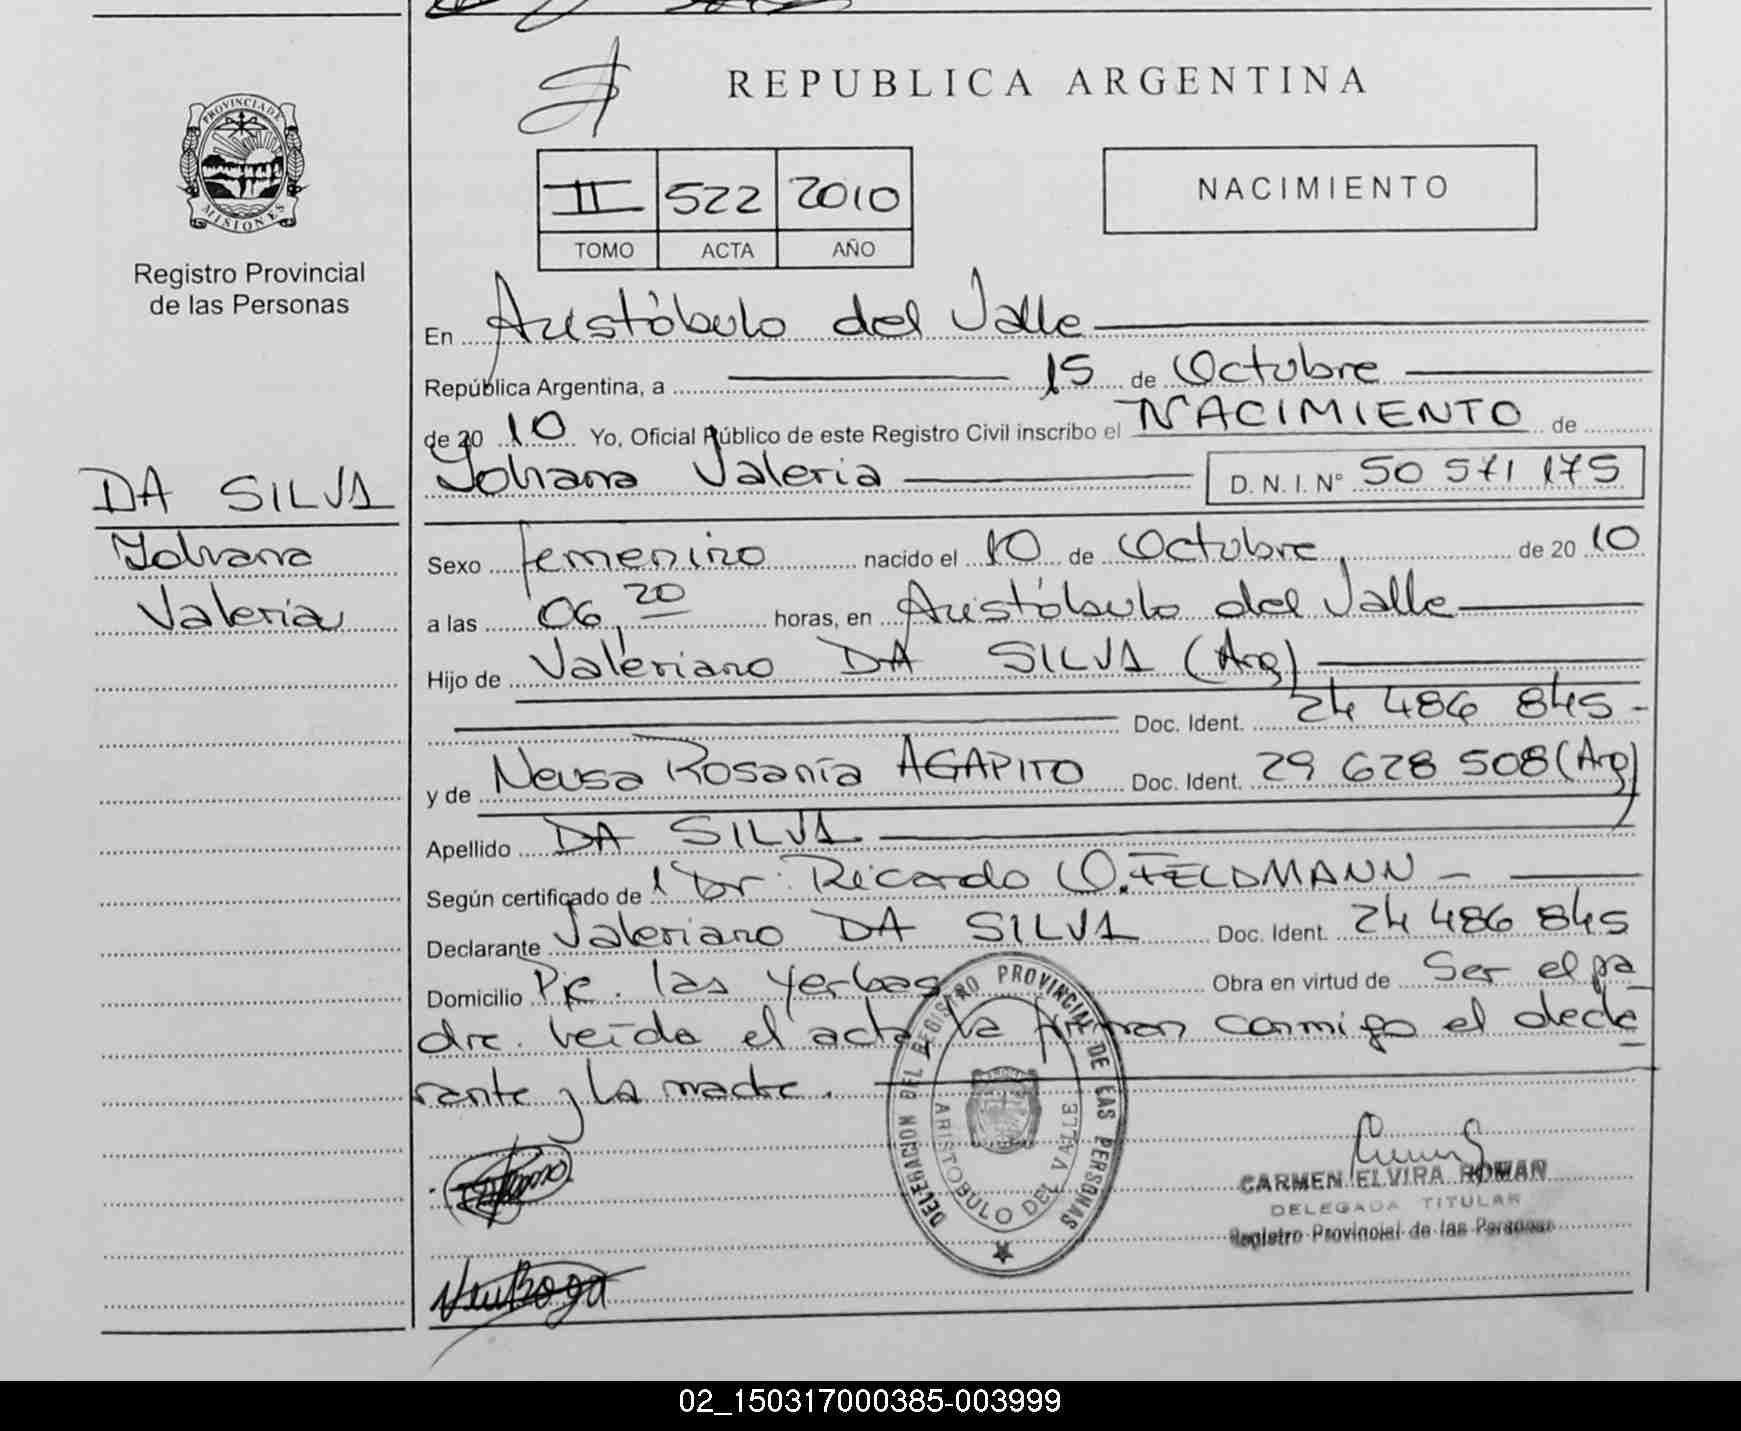 REPUBLICA ARGENTINA
PROVINCIA DE
MISIONES
Registro Provincial
de las Personas
II 522 2010
TOMO ACTA AÑO
NACIMIENTO
En Aristóbulo del Valle
República Argentina, a 15 de Octubre
de 20 10 Yo, Oficial Público de este Registro Civil inscribo el NACIMIENTO de
Johana Valeria D. N. I. N° 50 571 175
DA SILVA
Johana
Valeria
Sexo femenino nacido el 10 de Octubre de 20 10
a las 06,20 horas, en Aristóbulo del Valle
Hijo de Valeriano DA SILVA (Arg)
Doc. Ident. 24 486 845 -
y de Neusa Rosanía AGAPITO Doc. Ident. 29 628 508 (Arg)
Apellido DA SILVA
Según certificado de Dr. Ricardo O. FELDMANN -
Declarante Valeriano DA SILVA Doc. Ident. 24 486 845
Domicilio Pje. las yerbas Obra en virtud de Ser el pa
dre. leída el acta, la firman conmigo el decla
rante y la madre.
DELEGACION DEL REGISTRO PROVINCIAL DE LAS PERSONAS
ARISTOBULO DEL VALLE
CARMEN ELVIRA ROMAN
DELEGADA TITULAR
Registro Provincial de las Personas
02_150317000385-003999